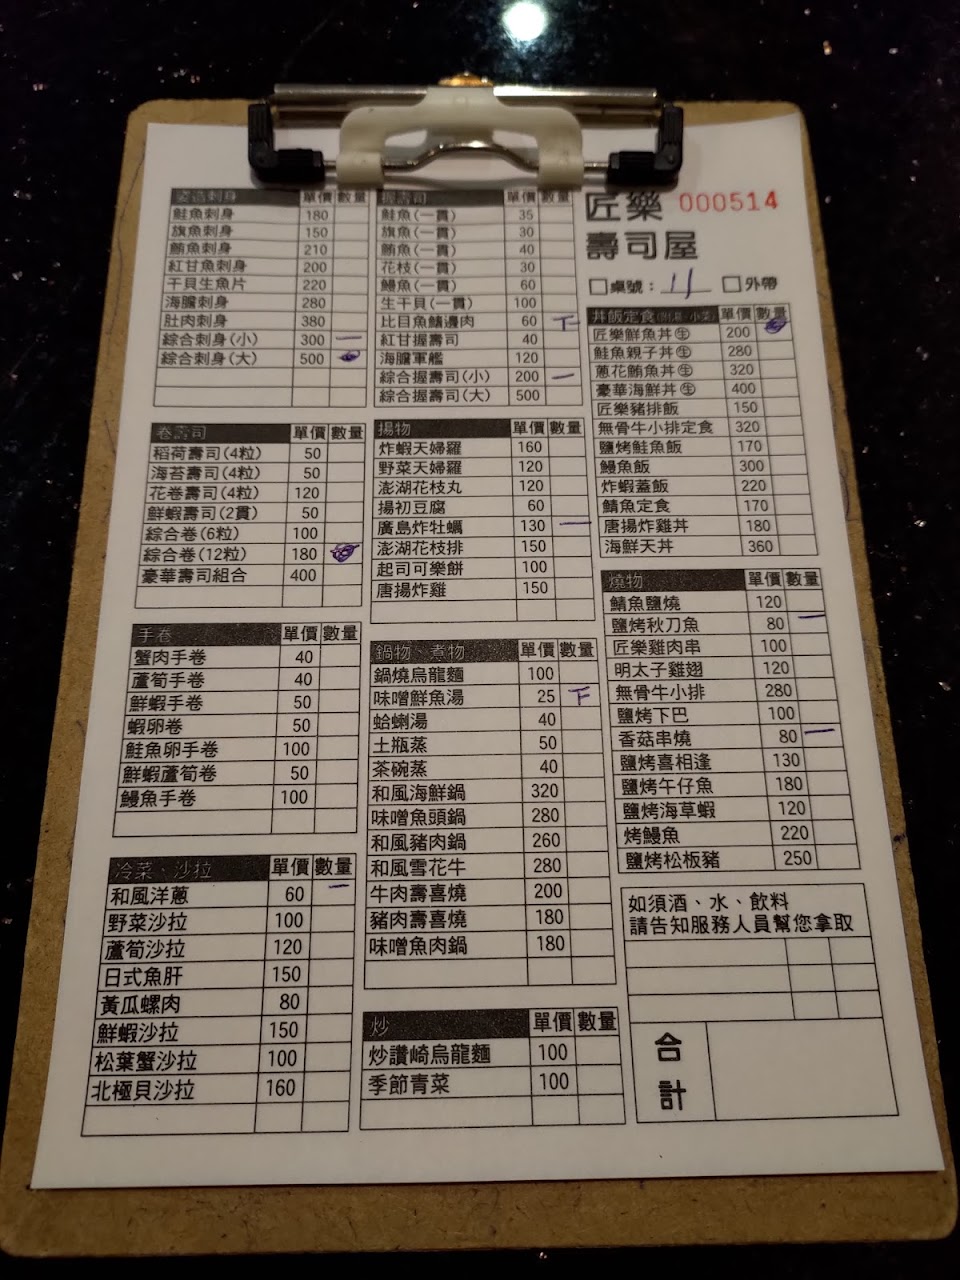 匠樂 000514
壽司屋
□桌號：11 □外帶
姿造刺身 單價 數量
鮭魚刺身 180
旗魚刺身 150
鮪魚刺身 210
紅甘魚刺身 200
干貝生魚片 220
海膽刺身 280
肚肉刺身 380
綜合刺身(小) 300 一
綜合刺身(大) 500
卷壽司 單價 數量
稻荷壽司(4粒) 50
海苔壽司(4粒) 50
花卷壽司(4粒) 120
鮮蝦壽司(2貫) 50
綜合卷(6粒) 100
綜合卷(12粒) 180
豪華壽司組合 400
手卷 單價 數量
蟹肉手卷 40
蘆筍手卷 40
鮮蝦手卷 50
蝦卵卷 50
鮭魚卵手卷 100
鮮蝦蘆筍卷 50
鰻魚手卷 100
冷菜、沙拉 單價 數量
和風洋蔥 60 一
野菜沙拉 100
蘆筍沙拉 120
日式魚肝 150
黃瓜螺肉 80
鮮蝦沙拉 150
松葉蟹沙拉 100
北極貝沙拉 160
握壽司 單價 數量
鮭魚(一貫) 35
旗魚(一貫) 30
鮪魚(一貫) 40
花枝(一貫) 30
鰻魚(一貫) 60
生干貝(一貫) 100
比目魚鰭邊肉 60 下
紅甘握壽司 40
海膽軍艦 120
綜合握壽司(小) 200 一
綜合握壽司(大) 500
揚物 單價 數量
炸蝦天婦羅 160
野菜天婦羅 120
澎湖花枝丸 120
揚初豆腐 60
廣島炸牡蠣 130 一
澎湖花枝排 150
起司可樂餅 100
唐揚炸雞 150
鍋物、煮物 單價 數量
鍋燒烏龍麵 100
味噌鮮魚湯 25 下
蛤蜊湯 40
土瓶蒸 50
茶碗蒸 40
和風海鮮鍋 320
味噌魚頭鍋 280
和風豬肉鍋 260
和風雪花牛 280
牛肉壽喜燒 200
豬肉壽喜燒 180
味噌魚肉鍋 180
炒 單價 數量
炒讚崎烏龍麵 100
季節青菜 100
丼飯定食(附湯、小菜) 單價 數量
匠樂鮮魚丼㊤ 200
鮭魚親子丼 280
蔥花鮪魚丼 320
豪華海鮮丼 400
匠樂豬排飯 150
無骨牛小排定食 320
鹽烤鮭魚飯 170
鰻魚飯 300
炸蝦蓋飯 220
鯖魚定食 170
唐揚炸雞丼 180
海鮮天丼 360
燒物 單價 數量
鯖魚鹽燒 120
鹽烤秋刀魚 80 一
匠樂雞肉串 100
明太子雞翅 120
無骨牛小排 280
鹽烤下巴 100
香菇串燒 80 一
鹽烤喜相逢 130
鹽烤午仔魚 180
鹽烤海草蝦 120
烤鰻魚 220
鹽烤松板豬 250
如須酒、水、飲料
請告知服務人員幫您拿取
合計